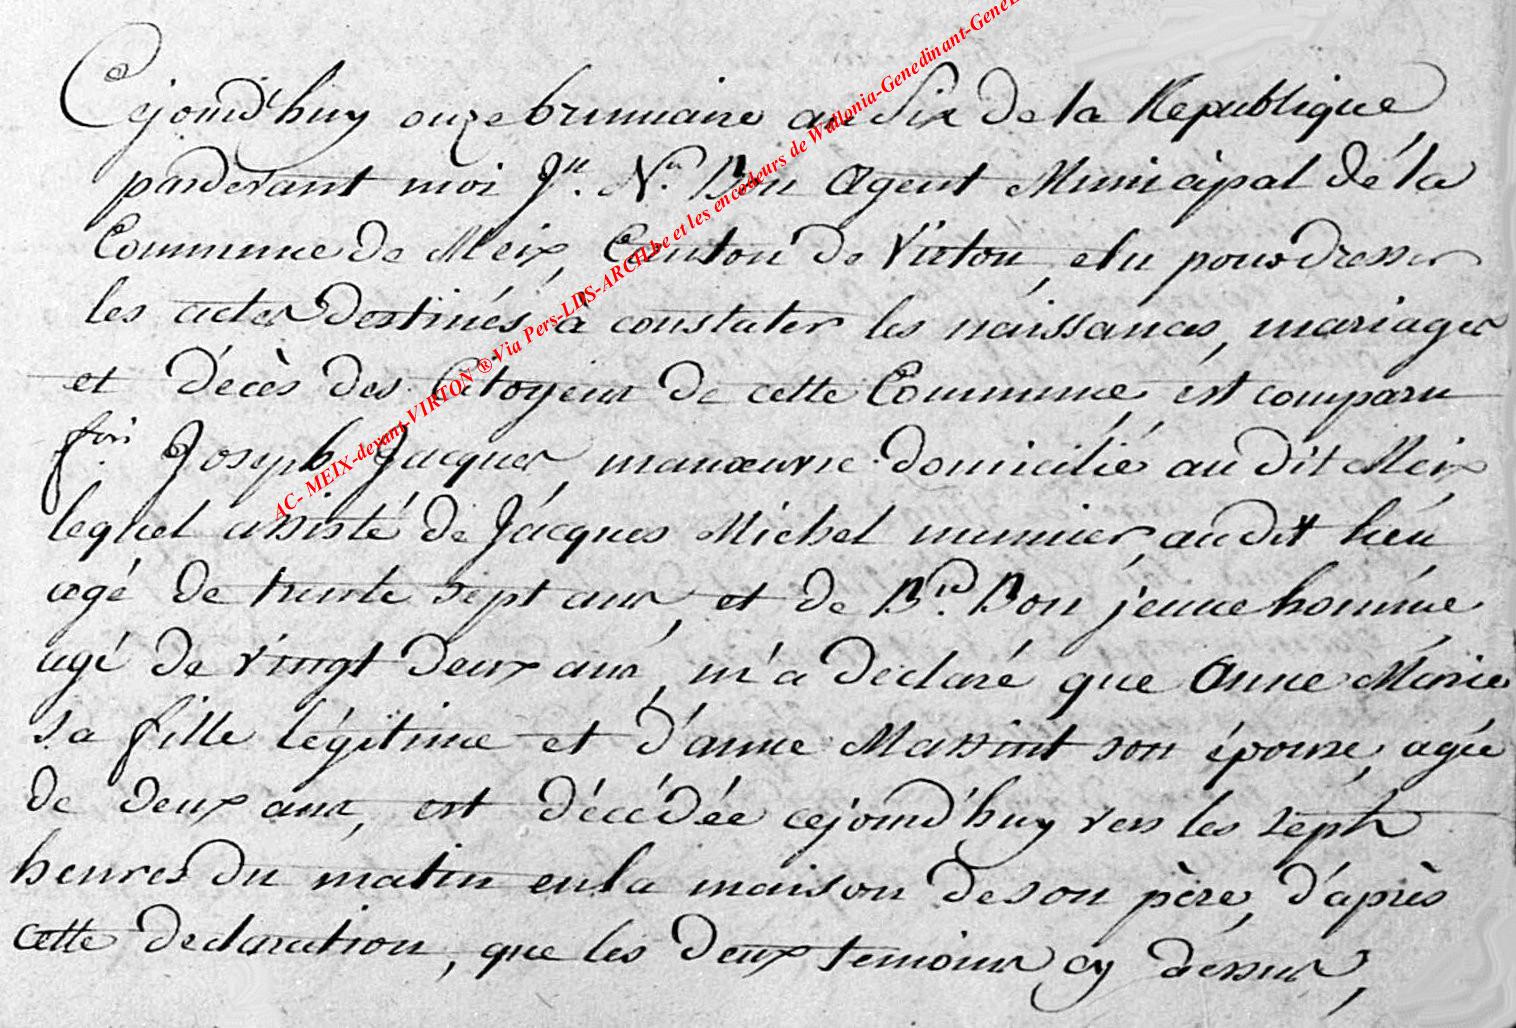 Cejourd'huy onze brumaire an Six de la Republique
pardevant moi Jn. Ns. Bon Agent Municipal de la
Commune de Meix, Canton de Virton, elu pour dresser
les actes destinés à constater les naissances, mariages
et décès des Citoyens de cette Commune, est comparu
fois Joseph Jacques, manœuvre domicilié au dit Meix
lequel assisté de Jacques Michel munier, audit lieu
agé de trente sept ans, et de Brd. Bon jeune homme
agé de vingt deux ans, m'a declaré que Anne Marie
sa fille légitime et d'anne Massint son épouse, agée
de deux ans, est décédée cejourd'huy vers les sept
heures du matin en la maison de son père, d'après
cette declaration, que les deux temoins cy dessus,
AC- MEIX-devant-VIRTON ® Via Pers-LDS-ARCH.be et les encodeurs de Wallonia-Genedinant-Gene